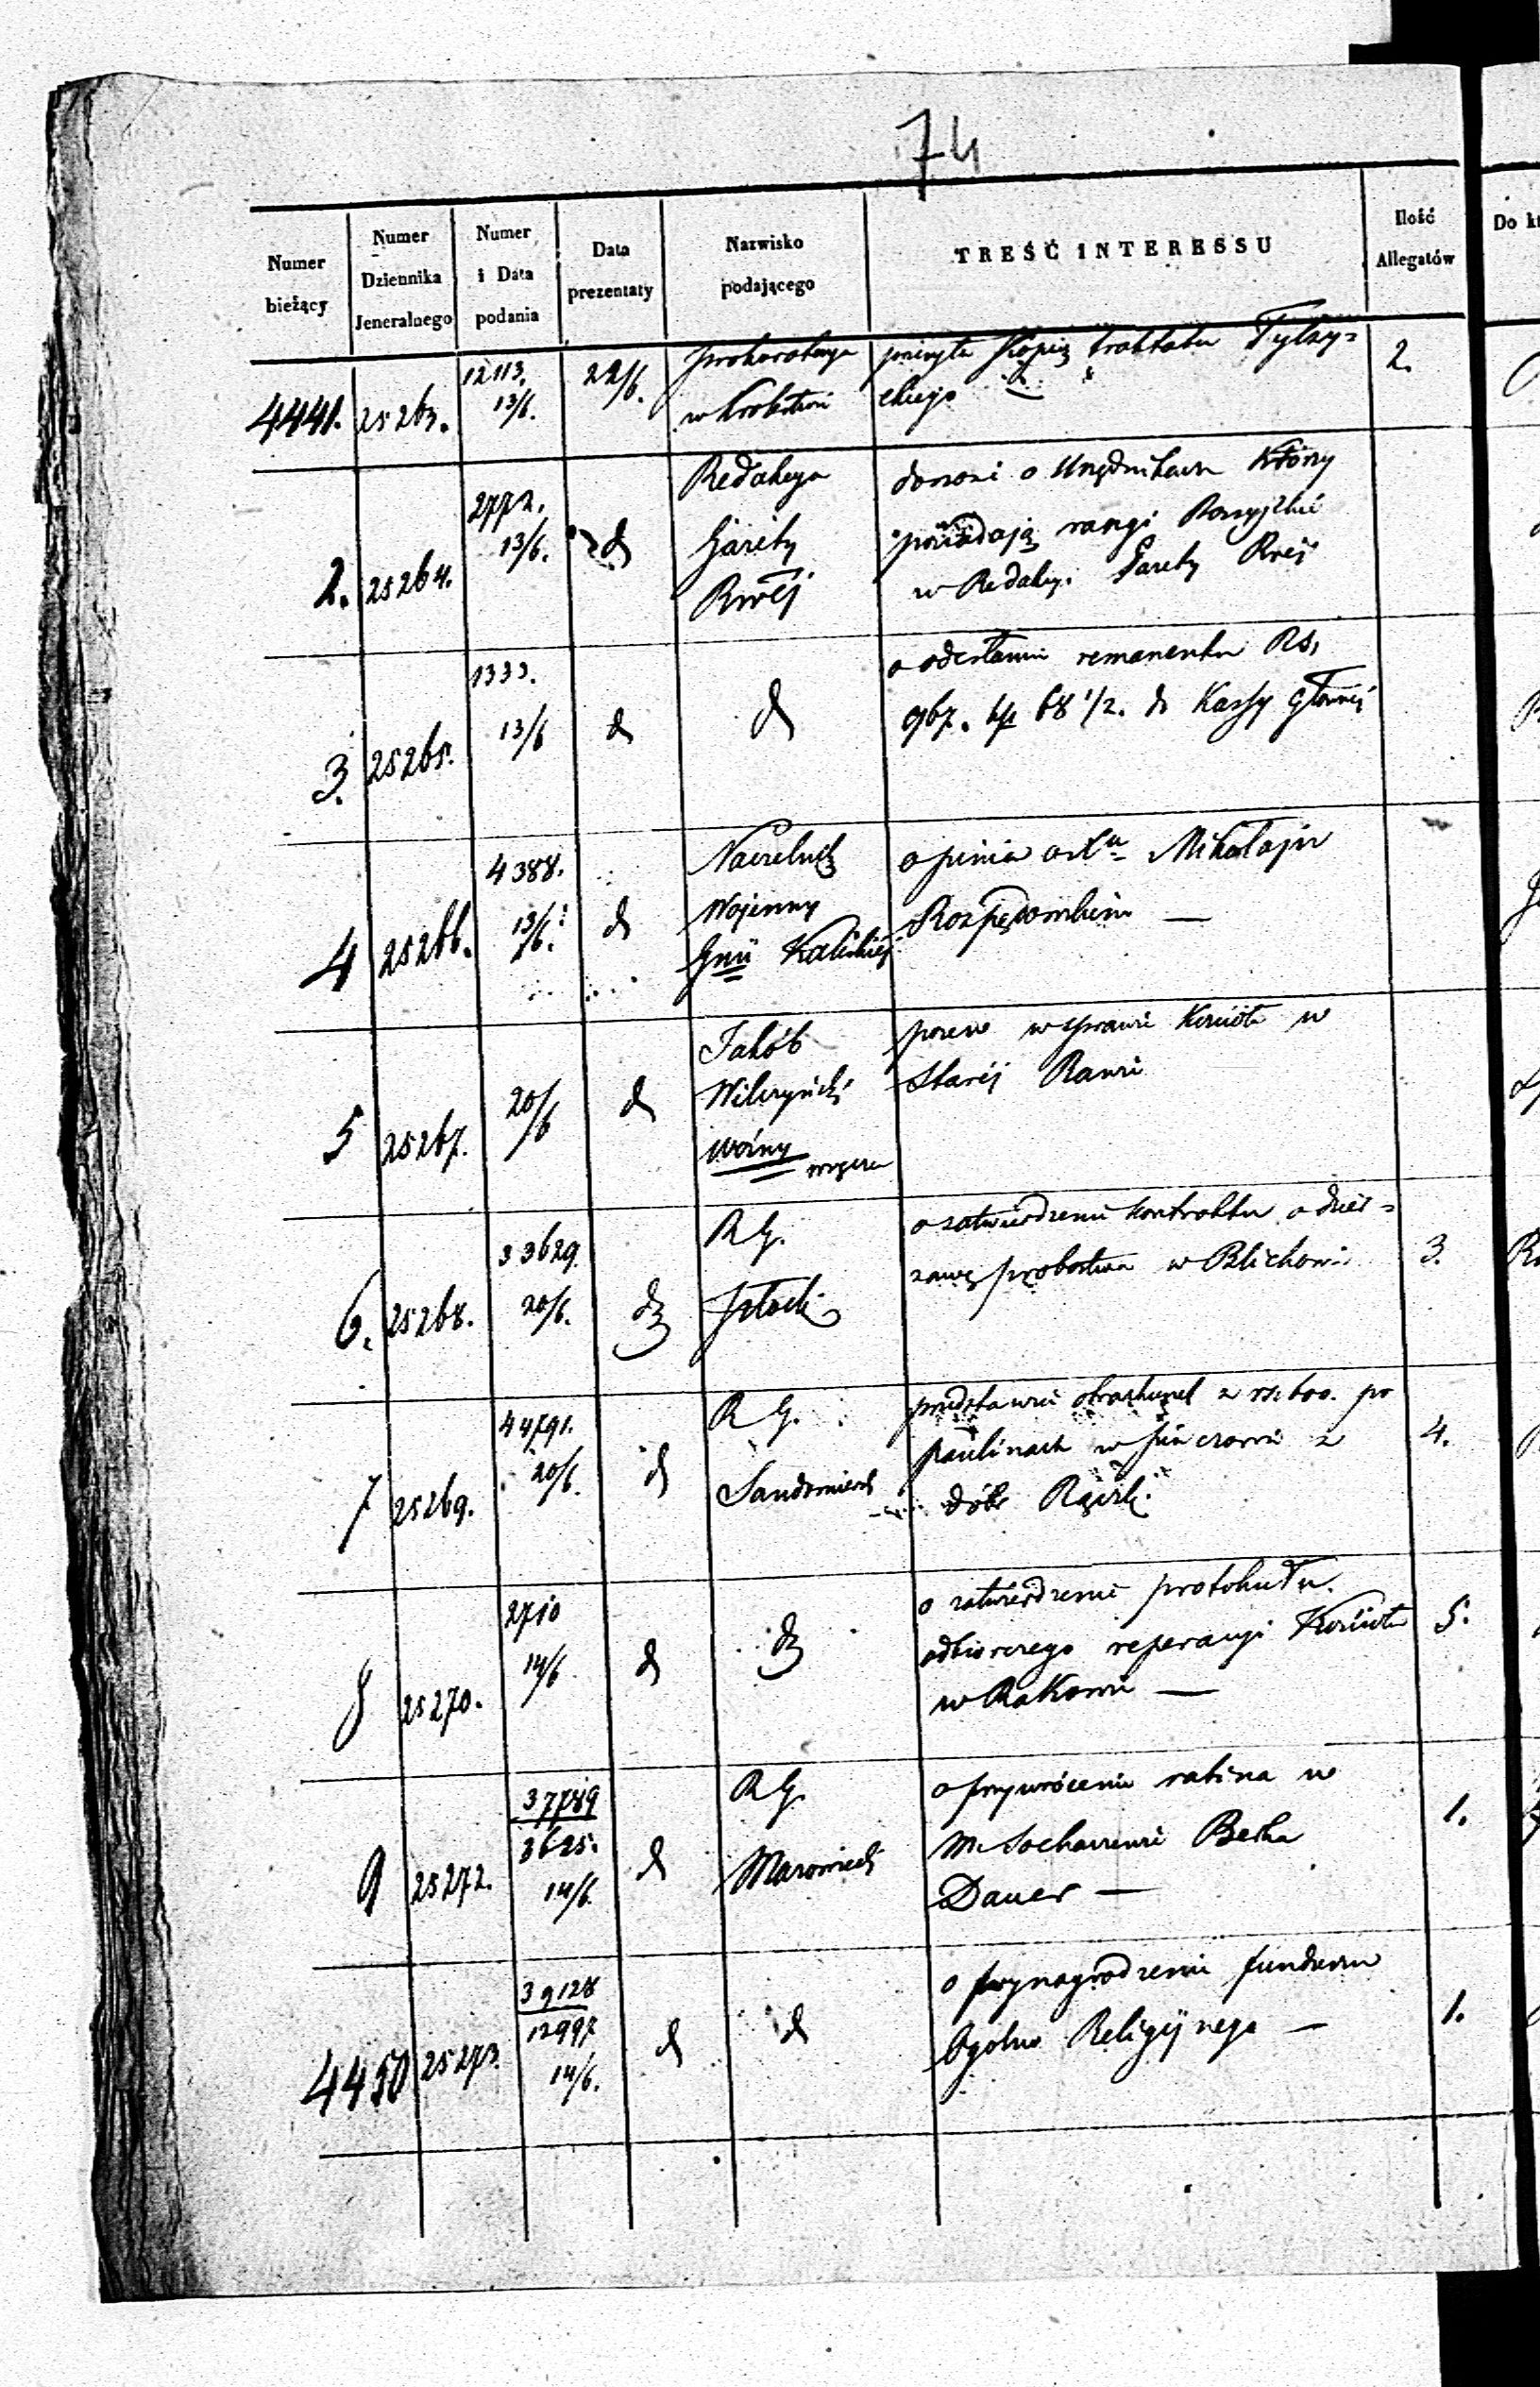 74
Numer bieżący
Numer Dziennika Jeneralnego
Numer i Data podania
Data prezentaty
Nazwisko podającego
TREŚĆ INTERESSU
Ilość Allegatów
Do
4441. 25263. 12113. 13/6. 22/6. Prokuratorya w Królestwie
przesyła Kopię traktatu Tylzy=
ckiego 2.
2. 25264. 2772. 13/6. d Redakcya
Gazety
Rząd
donosi o Urzędnikach którzy
posiadają rangi Rossyjskie
w Redakcyi Gazety Rząd
3. 25265. 1333. 13/6 d d
o odesłaniu remanentu Rs,
967. kp 68 1/2. do Kassy Głównej
4 25266. 4388. 13/6. d Naczelnik
Wojenny
Gnii Kaliskiej
opinia o Xu Mikołaju
5 25267. 20/6 d Jakób
Wilczyński
Woźny
pozew w sprawie Kościoła w
Starej Rawie
6. 25268. 33629. 20/6. d R G.
Płocki
o zatwierdzenie kontraktu o dzier=
zawę probostwa w Blichowie 3.
7 25269. 44791. 20/6. d R G.
Sandomierski
przedstawia obrachunek z rs. 600. po
Paulinach w Pińczowie z
dóbr 4.
8 25270. 2710 14/6 d d
o zatwierdzenie protokułu
odbiorczego reperacyi Kościoła
w Rakowie — 5.
9 25272. 37789 3625. 14/6. d R G.
Mazowiecki
o przywrócenie rabina w
m. Sochaczewie Berka
Dauer — 1.
4450 25273. 39128 12997 14/6. d d
o wynagrodzenie funduszu
Ogolno Religijnego — 1.